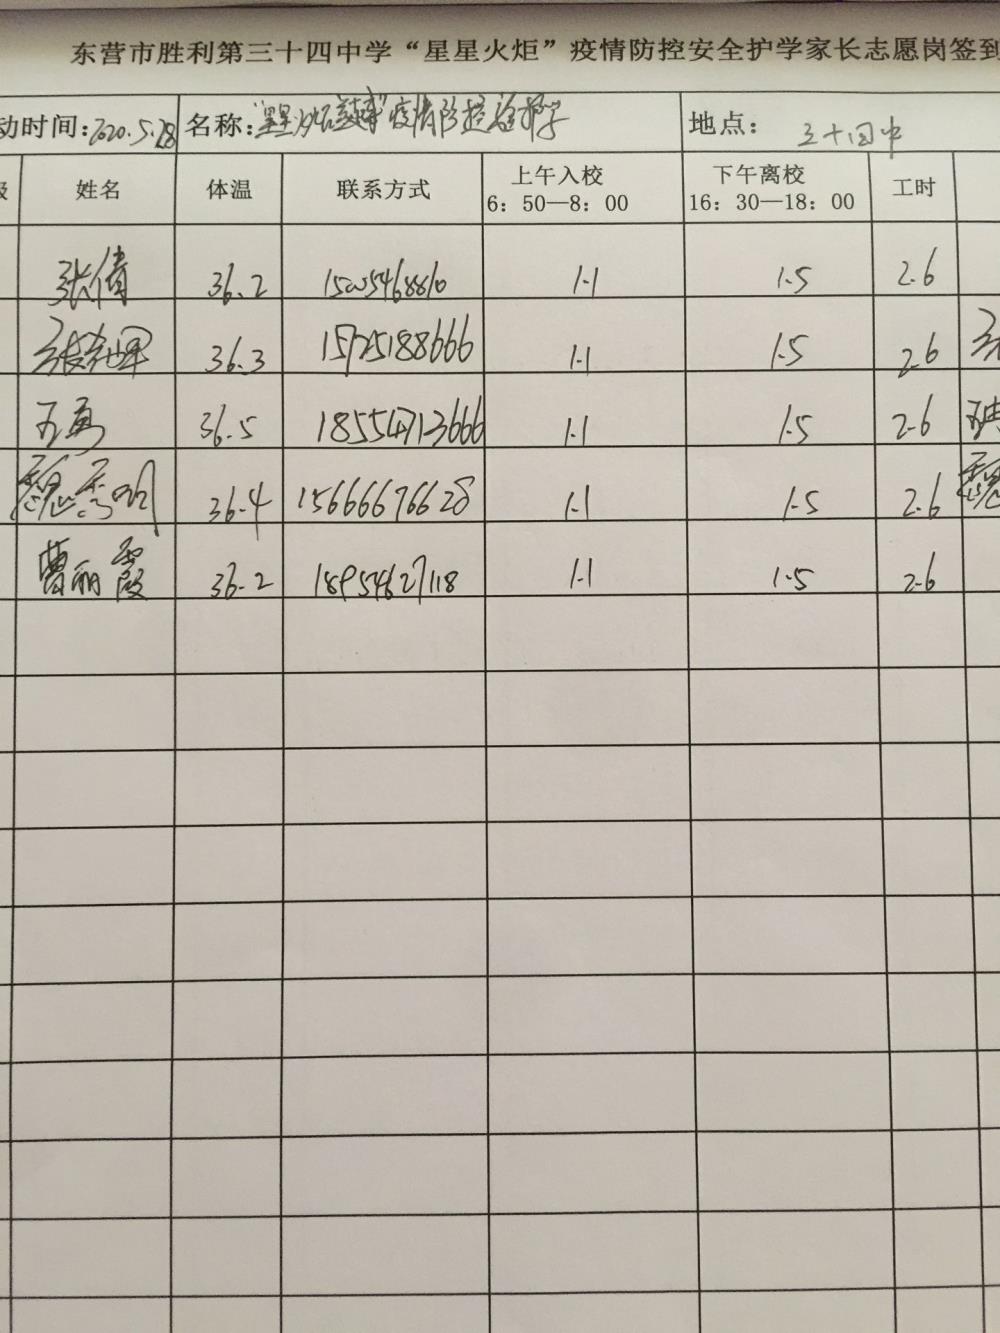 东营市胜利第三十四中学“星星火炬”疫情防控安全护学家长志愿岗签到
动时间：2020.5.28 名称： 疫情防控 护学 地点：三十四中
级 姓名 体温 联系方式 上午入校 6：50—8：00 下午离校 16：30—18：00 工时
张倩 36.2 1.1 1.5 2.6
36.3 15725188666 1.1 1.5 2.6
36.5 18554713666 1.1 1.5 2.6
魏秀明 36.4 15666676628 1.1 1.5 2.6
曹丽霞 36.2 18954627118 1.1 1.5 2.6